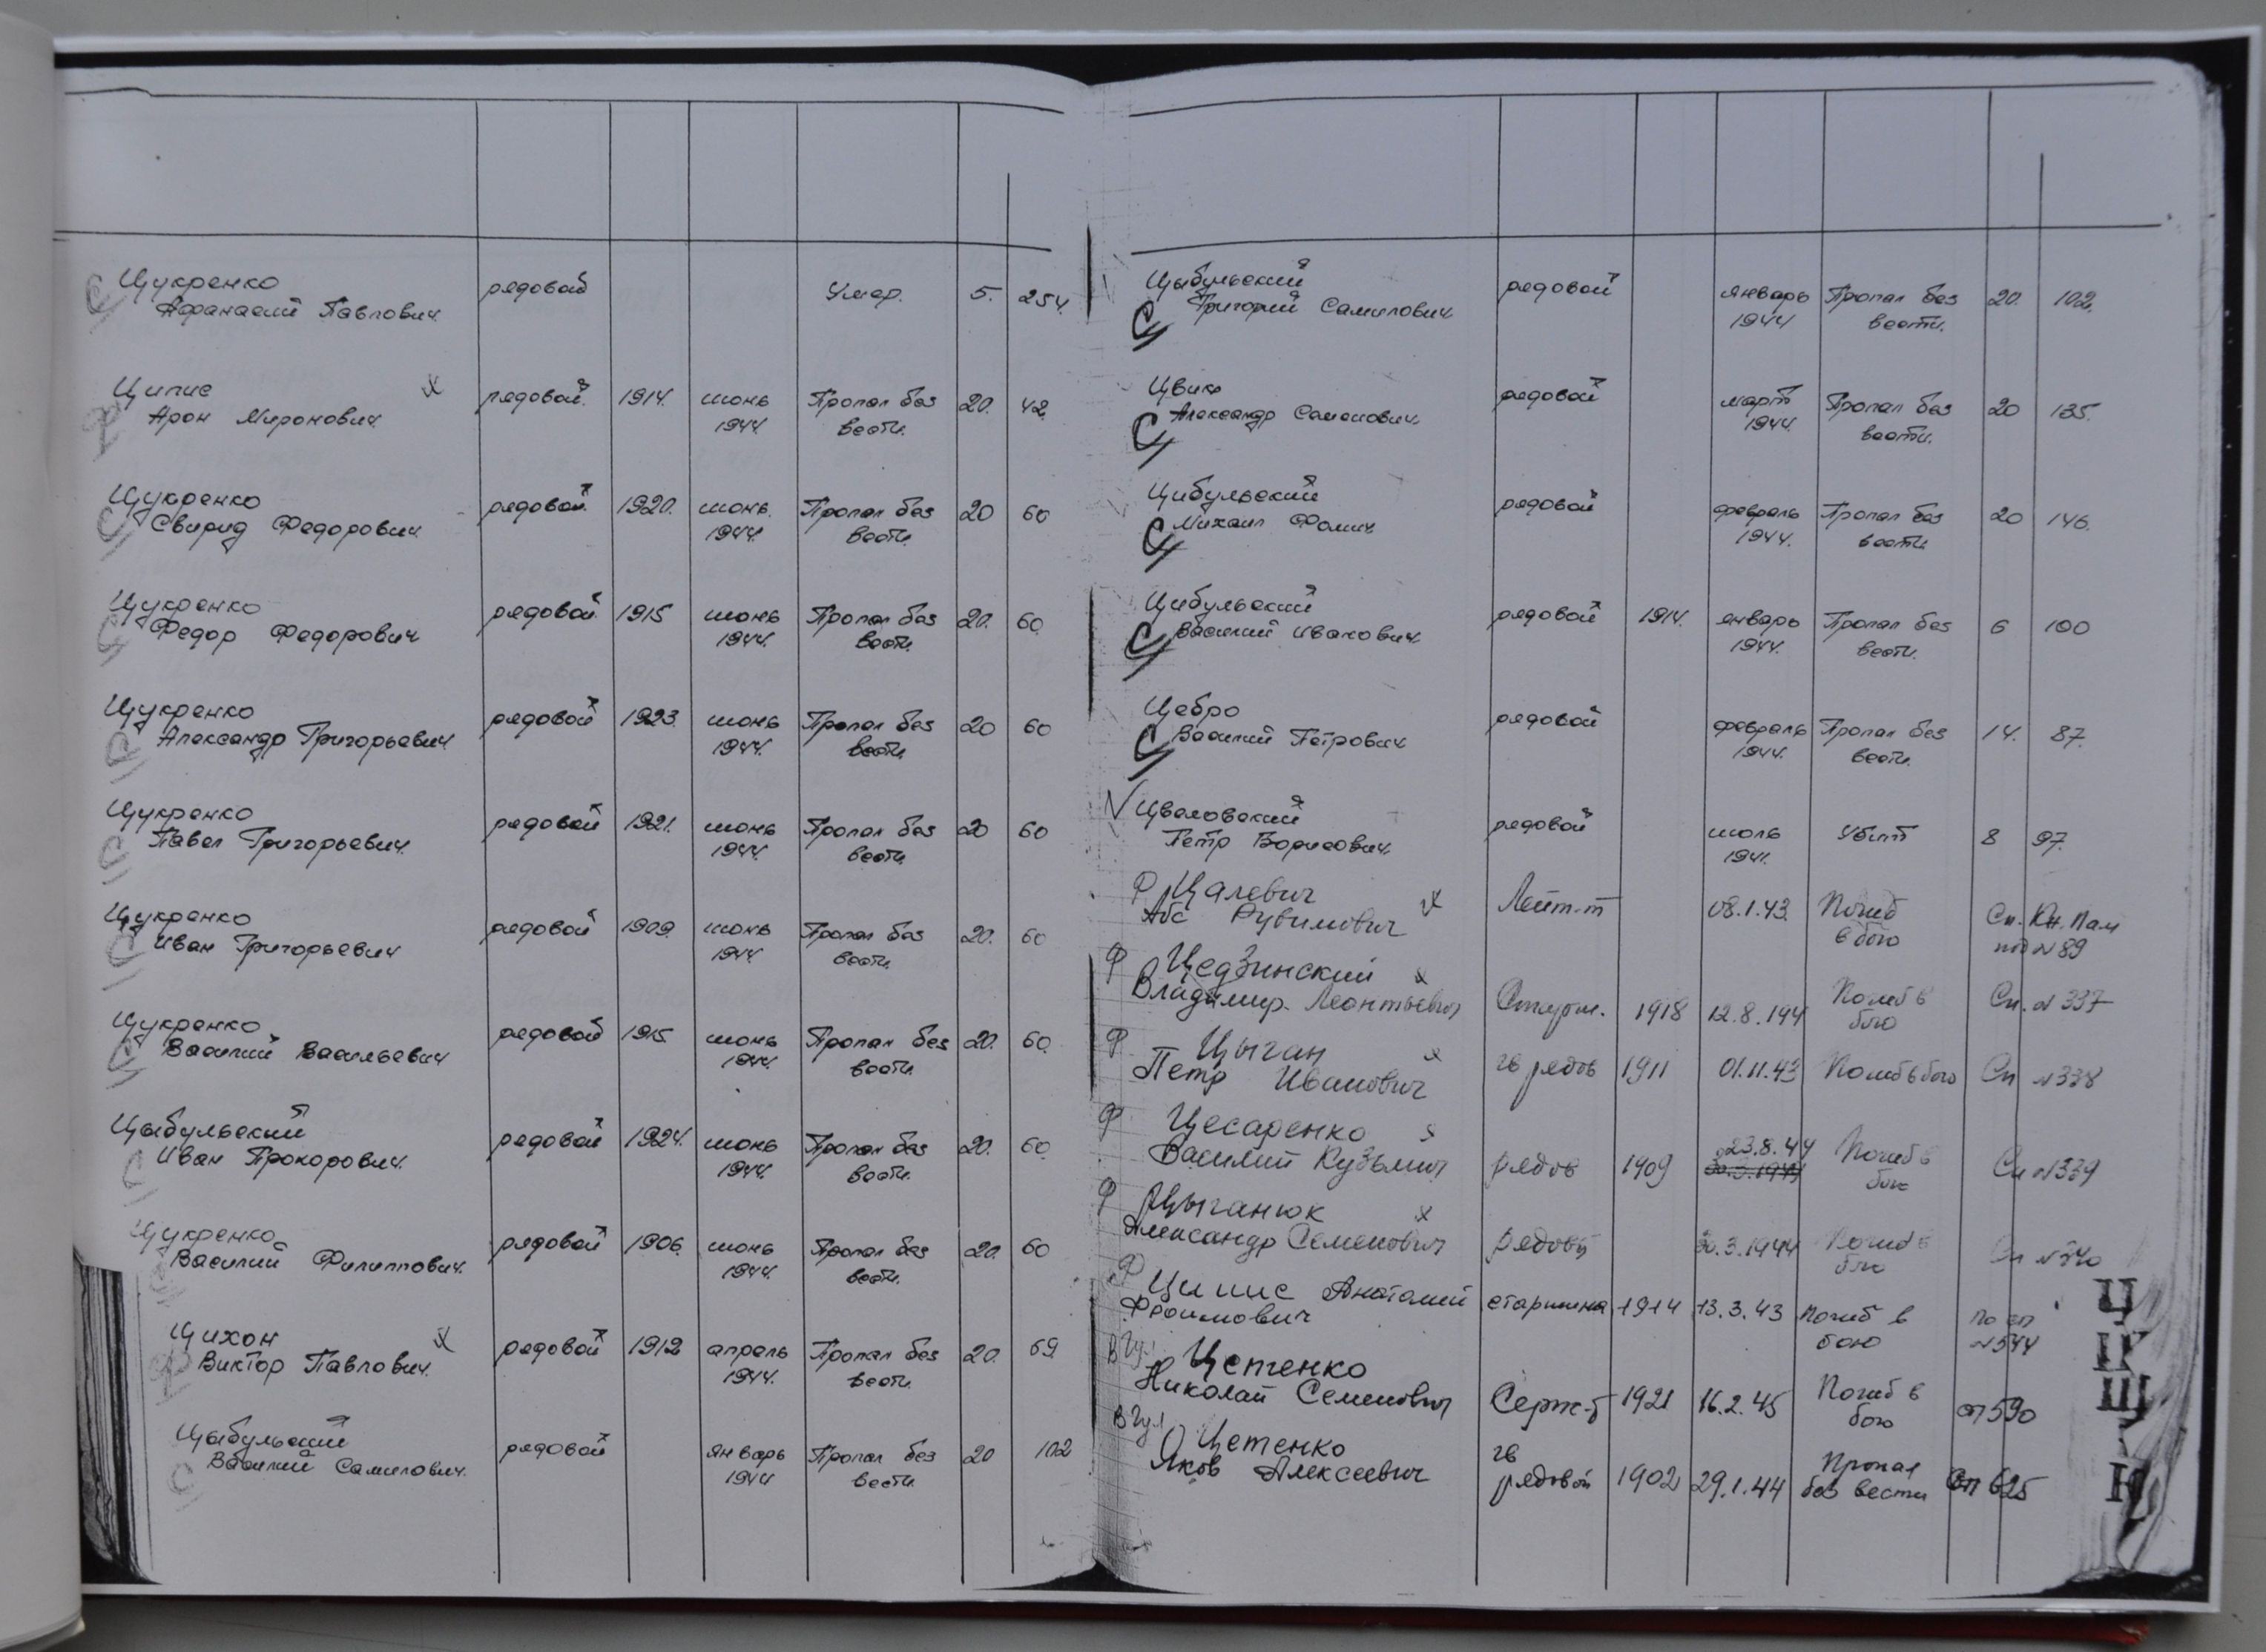 Цукренко рядовой Умер. 5. 254.
Афанасий Павлович
Ципис рядовой 1914. июнь Пропал без 20. 42.
Арон Миронович 1944. вести.
Цукренко рядовой 1920. июнь Пропал без 20 60
Свирид Федорович 1944. вести.
Цукренко рядовой 1915 июнь Пропал без 20. 60
Федор Федорович 1944. вести.
Цукренко рядовой 1923. июнь Пропал без 20 60
Александр Григорьевич 1944. вести.
Цукренко рядовой 1921. июнь Пропал без 20 60
Павел Григорьевич 1944. вести.
Цукренко рядовой 1909. июнь Пропал без 20. 60
Иван Григорьевич 1944. вести.
Цукренко рядовой 1915. июнь Пропал без 20. 60
Василий Васильевич 1944. вести.
Цыбульский рядовой 1924. июнь Пропал без 20. 60
Иван Прохорович 1944. вести.
Цукренко рядовой 1906. июнь Пропал без 20. 60
Василий Филиппович. 1944. вести.
Цихон рядовой 1912 апрель Пропал без 20. 69
Виктор Павлович 1944. вести.
Цыбульский рядовой январь Пропал без 20 102
Василий Самилович. 1944 вести.
Цыбульский рядовой январь Пропал без 20. 102.
Григорий Самилович 1944 вести.
Цвик рядовой март Пропал без 20 135.
Александр Семенович 1944. вести.
Цибульский рядовой февраль Пропал без 20 146.
Михаил Фомич 1944. вести.
Цибульский рядовой 1914. январь Пропал без 6 100
Василий Иванович 1944. вести.
Цебро рядовой февраль Пропал без 14. 87.
Василий Петрович 1944. вести.
рядовой июль Убит 8 97.
Петр Борисович. 1941.
Ф Цалевич Лейт-т 08.1.43. Погиб Сп. Кн. Пам
Абс Рувимович в бою под №89
Ф Цедзинский
Владимир Леонтьевич 1918 12.8.194 Погиб в бою Сп. №337
Ф Цыган гв рядов 1911 01.11.43 Погиб в бою Сп №338
Петр Иванович
Ф Цесаренко 23.8.44 Погиб в
Василий Кузьмич рядов 1909 30.3.1944 бою Сп №339
Ф Цыганюк
Александр Семенович рядовй 30.3.1944 Погиб в бою Сп №340
Ф
Ципис Анатолий старшина 1914 13.3.43 Погиб в по сп
Фроимович бою №544
В Гул Цетенко
Николай Семенович Серж-т 1921 16.2.45 Погиб в бою сп 590
В Гул Цетенко гв Пропал
Яков Алексеевич рядовой 1902 29.1.44 без вести Сп 625
Ч
Щ
Ю